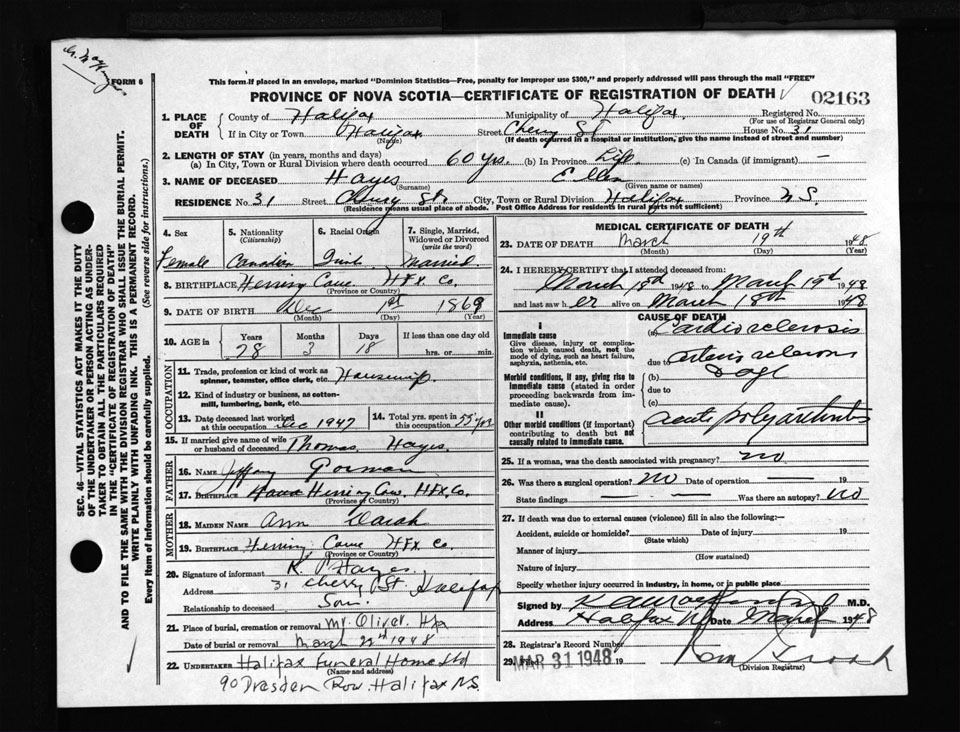 FORM 6
This form if placed in an envelope, marked "Dominion Statistics—Free, penalty for improper use $300," and properly addressed will pass through the mail "FREE"
PROVINCE OF NOVA SCOTIA—CERTIFICATE OF REGISTRATION OF DEATH
02163
1. PLACE OF DEATH
County of Halifax Municipality of Halifax Registered No.
(For use of Registrar General only)
If in City or Town Halifax Street Cherry St House No. 31
(Name) (If death occurred in a hospital or institution, give name instead of street and number)
2. LENGTH OF STAY (in years, months and days)
(a) In City, Town or Rural Division where death occurred 60 yrs. (b) In Province Life (c) In Canada (if immigrant) —
3. NAME OF DECEASED Hayes Ellen
(Surname) (Given name or names)
RESIDENCE No. 31 Street Cherry St. City, Town or Rural Division Halifax Province N.S.
(Residence means usual place of abode. Post Office Address for residents in rural parts not sufficient)
4. Sex
Female
5. Nationality (Citizenship)
Canadian
6. Racial Origin
7. Single, Married, Widowed or Divorced (write the word)
Married
8. BIRTHPLACE Herring Cove Hfx Co.
(Province or Country)
9. DATE OF BIRTH Dec 1st 1869
(Month) (Day) (Year)
10. AGE in Years Months Days If less than one day
78 3 18 hrs. or min.
OCCUPATION
11. Trade, profession or kind of work as spinner, teamster, office clerk, etc. Housewife
12. Kind of industry or business, as cotton-mill, lumbering, bank, etc.
13. Date deceased last worked at this occupation Dec 1947
14. Total yrs. spent in this occupation 55 yrs
15. If married give name of wife or husband of deceased Thomas Hayes
FATHER
16. NAME Gorman
17. BIRTHPLACE Herring Cove, Hfx Co.
(Province or Country)
MOTHER
18. MAIDEN NAME Ann
19. BIRTHPLACE Herring Cove Hfx. Co.
(Province or Country)
20. Signature of informant Hayes
Address 31 Cherry St. Halifax
Relationship to deceased Son.
21. Place of burial, cremation or removal Mt. Olivet Hfx
Date of burial or removal March 22nd 1948
22. UNDERTAKER Halifax Funeral Home Ltd
(Name and address)
90 Dresden Row. Halifax N.S.
MEDICAL CERTIFICATE OF DEATH
23. DATE OF DEATH March 19th 1948
(Month) (Day) (Year)
24. I HEREBY CERTIFY that I attended deceased from:
March 1948 to March 19th 1948
and last saw her alive on March 18th 1948
CAUSE OF DEATH
I
Immediate cause
Give disease, injury or complication which caused death, not the mode of dying, such as heart failure, asphyxia, asthenia, etc.
(a) Cardiosclerosis
due to
Morbid conditions, if any, giving rise to immediate cause (stated in order proceeding backwards from immediate cause).
(b)
due to
(c)
II
Other morbid conditions (if important) contributing to death but not causally related to immediate cause.
acute polyarthritis
25. If a woman, was the death associated with pregnancy? no
26. Was there a surgical operation? no Date of operation — 19
State findings — — — Was there an autopsy? no
27. If death was due to external causes (violence) fill in also the following:—
Accident, suicide or homicide? Date of injury 19
(State which)
Manner of injury
(How sustained)
Nature of injury
Specify whether injury occurred in industry, in home, or in public place
Signed by M.D.
Address Halifax Date March 1948
28. Registrar's Record Number
29. MAR 31 1948 19
(Division Registrar)
SEC. 46—VITAL STATISTICS ACT MAKES IT THE DUTY
OF THE UNDERTAKER OR PERSON ACTING AS UNDER-
TAKER TO OBTAIN ALL THE PARTICULARS REQUIRED
IN THE "CERTIFICATE OF REGISTRATION OF DEATH"
AND TO FILE THE SAME WITH THE DIVISION REGISTRAR WHO SHALL ISSUE THE BURIAL PERMIT.
WRITE PLAINLY WITH UNFADING INK. THIS IS A PERMANENT RECORD.
Every item of information should be carefully supplied. (See reverse side for instructions.)